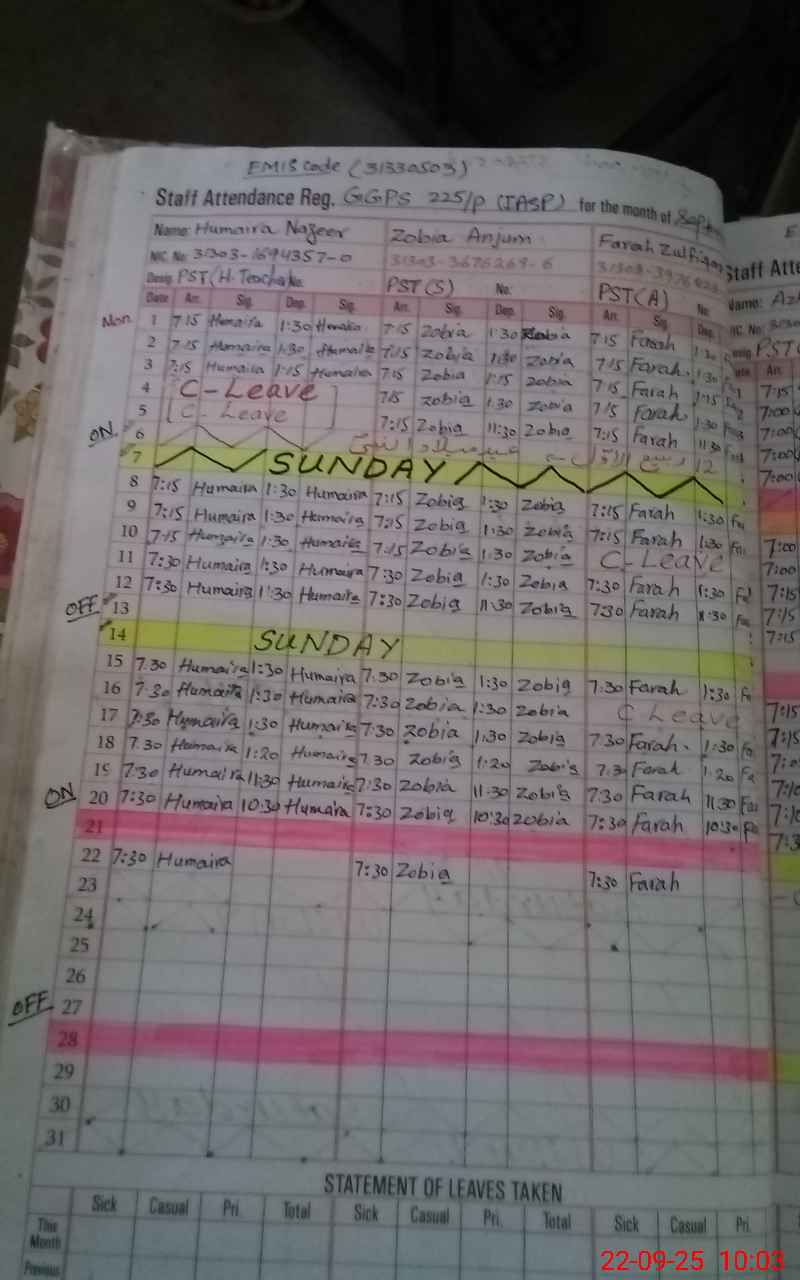 EMIS Code (31330503)
Staff Attendance Reg. GGPS 225/P (IASP) for the month of Sept
Name: Humaira Nazeer Zobia Anjum Farah Zulfiqar
NIC. No: 31303-1694357-0 31303-3676269-6
Desig. PST (H. Teacher) No: PST(S) No: PST(A) No:
Date Arr. Sig. Dep. Sig. Arr. Sig. Dep. Sig. Arr. Sig. Dep.
Mon. 1 7:15 Humaira 1:30 Humaira 7:15 Zobia 1:30 Zobia 7:15 Farah 1:30
2 7:15 Humaira 1:30 Humaira 7:15 Zobia 1:30 Zobia 7:15 Farah 1:30
3 7:15 Humaira 1:15 Humaira 7:15 Zobia 1:15 Zobia 7:15 Farah 1:15
4 C-Leave 7:15 Zobia 1:30 Zobia 7:15 Farah 1:30
5 C-Leave 7:15 Zobia 11:30 Zobia 7:15 Farah 11:30
ON 6 12 ربیع الاول عید میلاد النبی
7 SUNDAY
8 7:15 Humaira 1:30 Humaira 7:15 Zobia 1:30 Zobia 7:15 Farah 1:30 Fa
9 7:15 Humaira 1:30 Humaira 7:15 Zobia 1:30 Zobia 7:15 Farah 1:30 Fa
10 7:15 Humaira 1:30 Humaira 7:15 Zobia 1:30 Zobia C-Leave
11 7:30 Humaira 1:30 Humaira 7:30 Zobia 1:30 Zobia 7:30 Farah 1:30 Fa
12 7:30 Humaira 11:30 Humaira 7:30 Zobia 11:30 Zobia 7:30 Farah 11:30 Fa
OFF 13
14 SUNDAY
15 7:30 Humaira 1:30 Humaira 7:30 Zobia 1:30 Zobia 7:30 Farah 1:30 Fa
16 7:30 Humaira 1:30 Humaira 7:30 Zobia 1:30 Zobia C Leave
17 7:30 Humaira 1:30 Humaira 7:30 Zobia 1:30 Zobia 7:30 Farah 1:30 Fa
18 7:30 Humaira 1:20 Humaira 7:30 Zobia 1:20 Zobia 7:3 Farah 1:20 Fa
19 7:30 Humaira 11:30 Humaira 7:30 Zobia 11:30 Zobia 7:30 Farah 11:30 Fa
ON 20 7:30 Humaira 10:30 Humaira 7:30 Zobia 10:30 Zobia 7:30 Farah 10:30 Fa
21
22 7:30 Humaira 7:30 Zobia 7:30 Farah
23
24
25
26
OFF 27
28
29
30
31
STATEMENT OF LEAVES TAKEN
Sick Casual Pri. Total Sick Casual Pri. Total Sick Casual Pri.
This Month
Previous
Staff Atte
Name:
NIC. No:
PST
Arr.
7:15
7:00
7:00
7:00
7:00
7:00
7:00
7:15
7:15
7:15
7:15
7:15
22-09-25 10:03